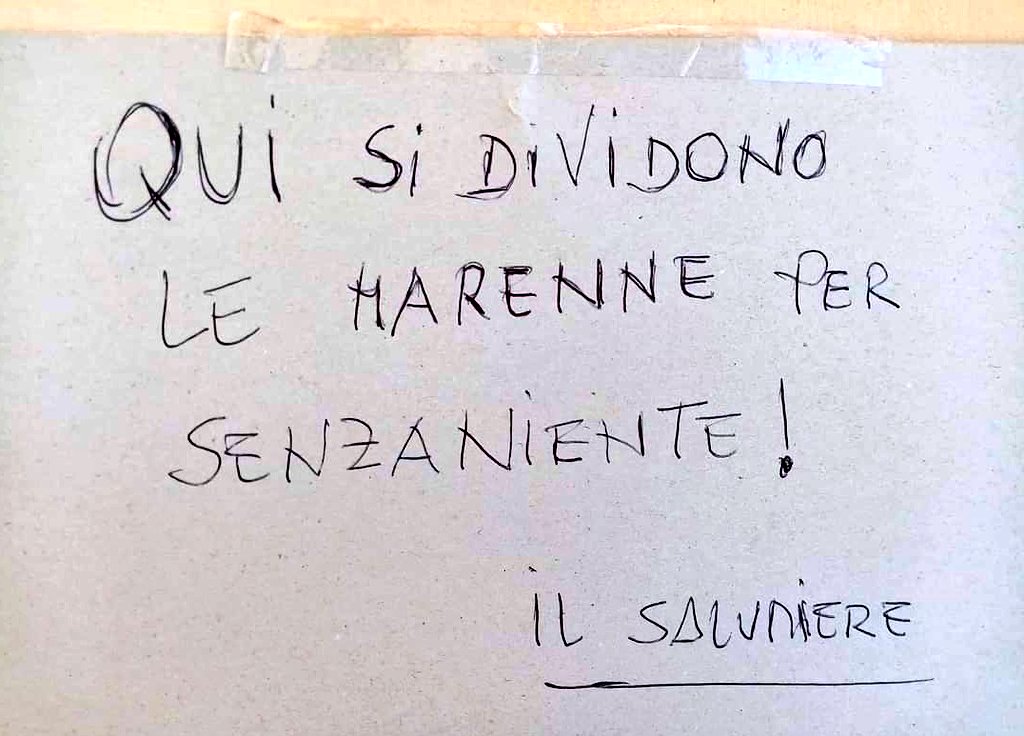 QUI SI DIVIDONO
LE MARENNE PER
SENZANIENTE!
IL SALUMIERE